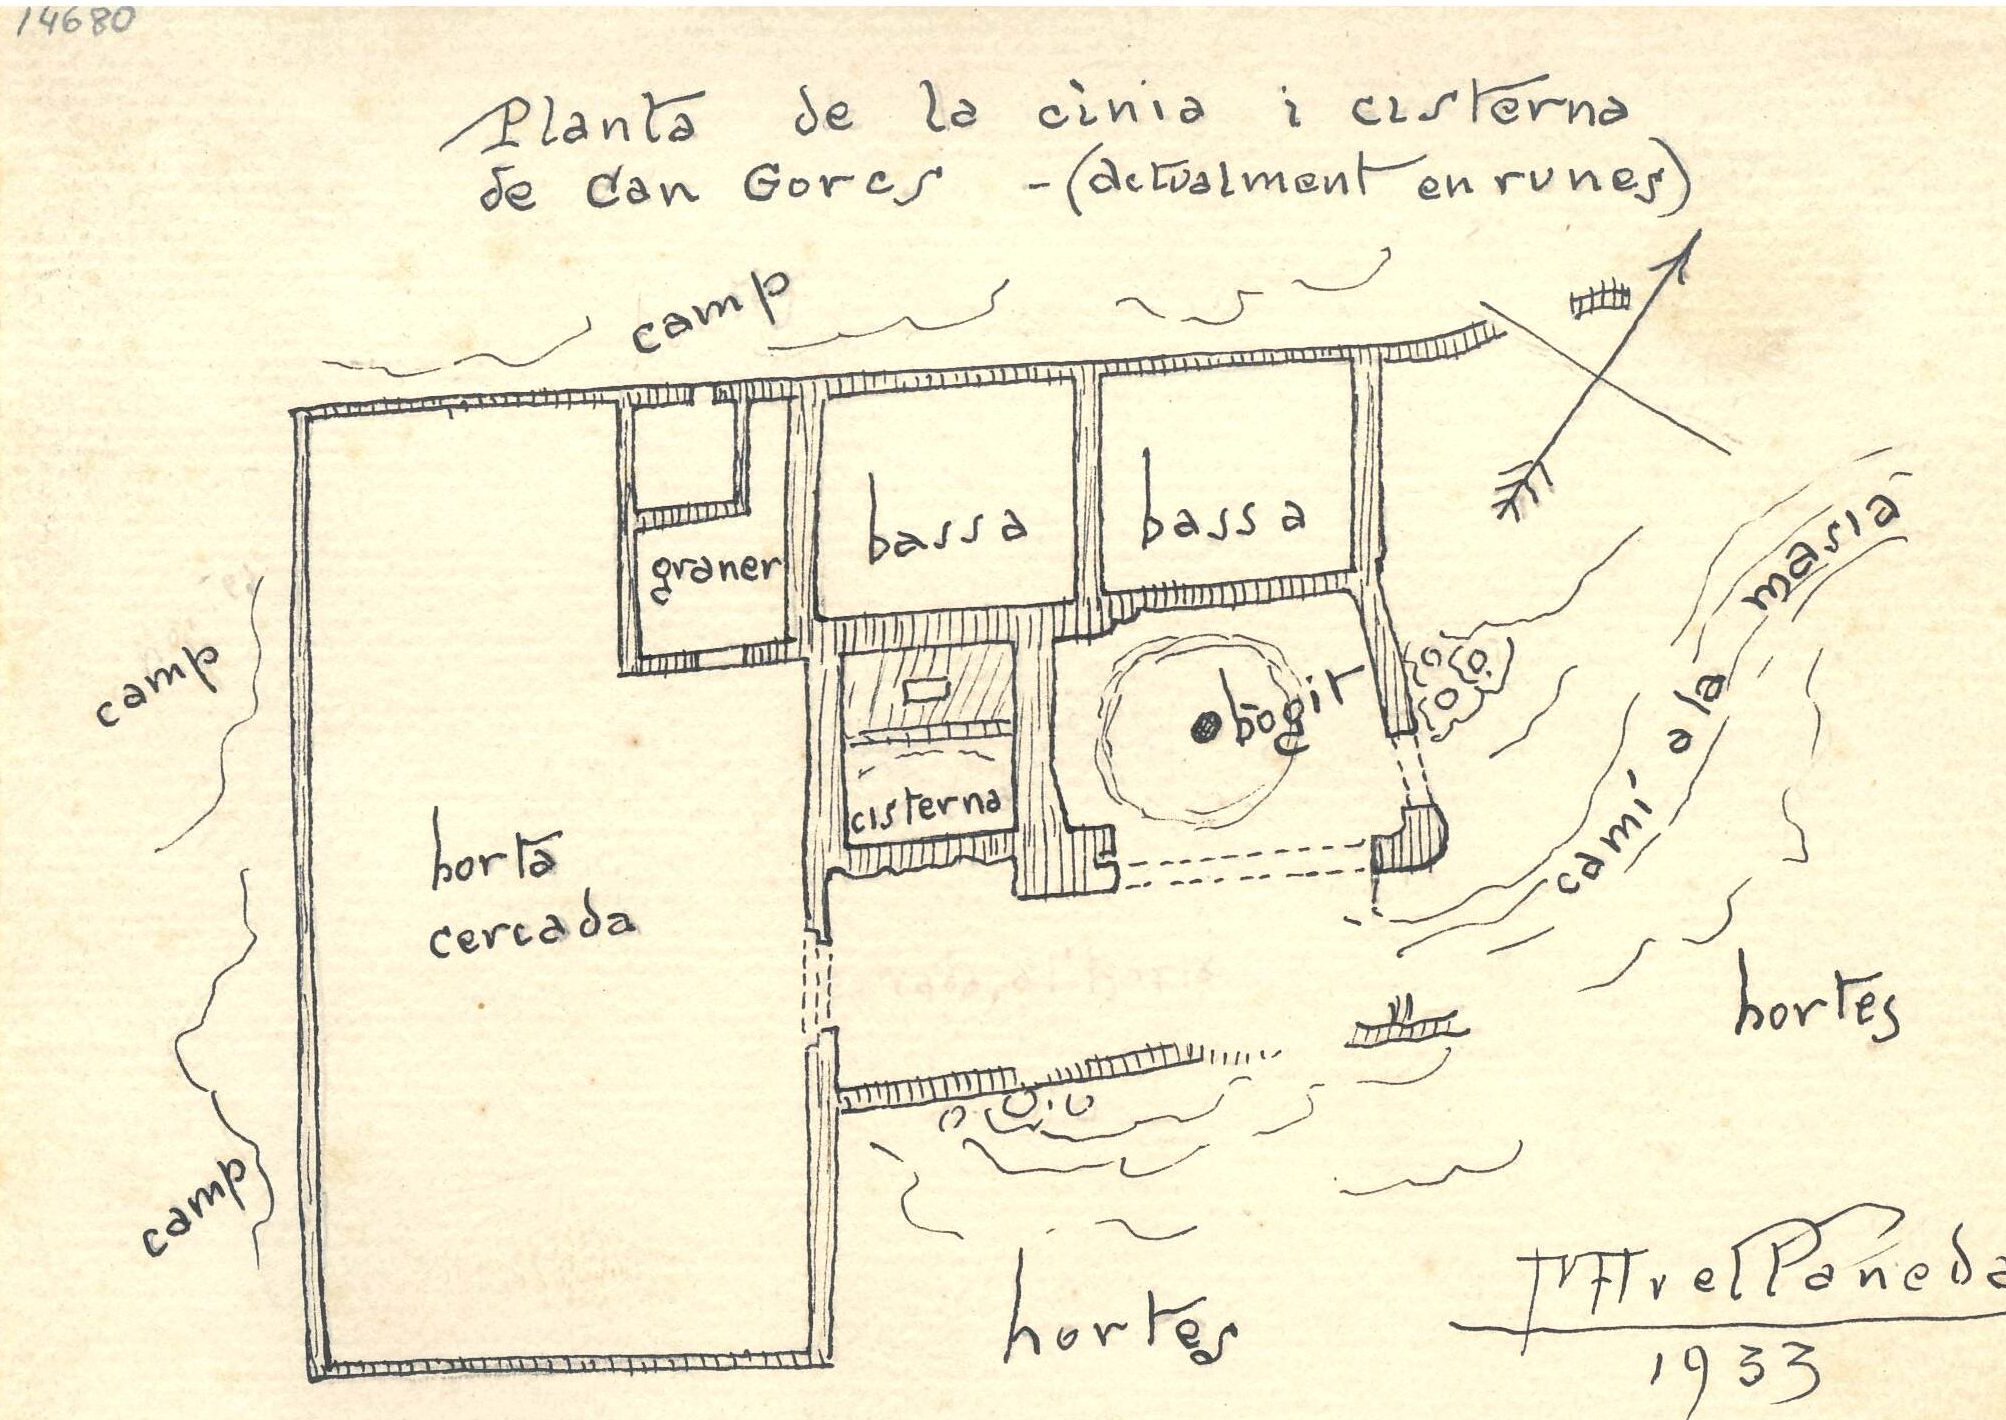 14680
Planta de la cinia i cisterna
de Can Gorcs - (actualment en runes)
camp
bassa
bassa
graner
masia
camp
bogit
a la
cisterna
camí
horta
cercada
hortes
camp
hortes
1933